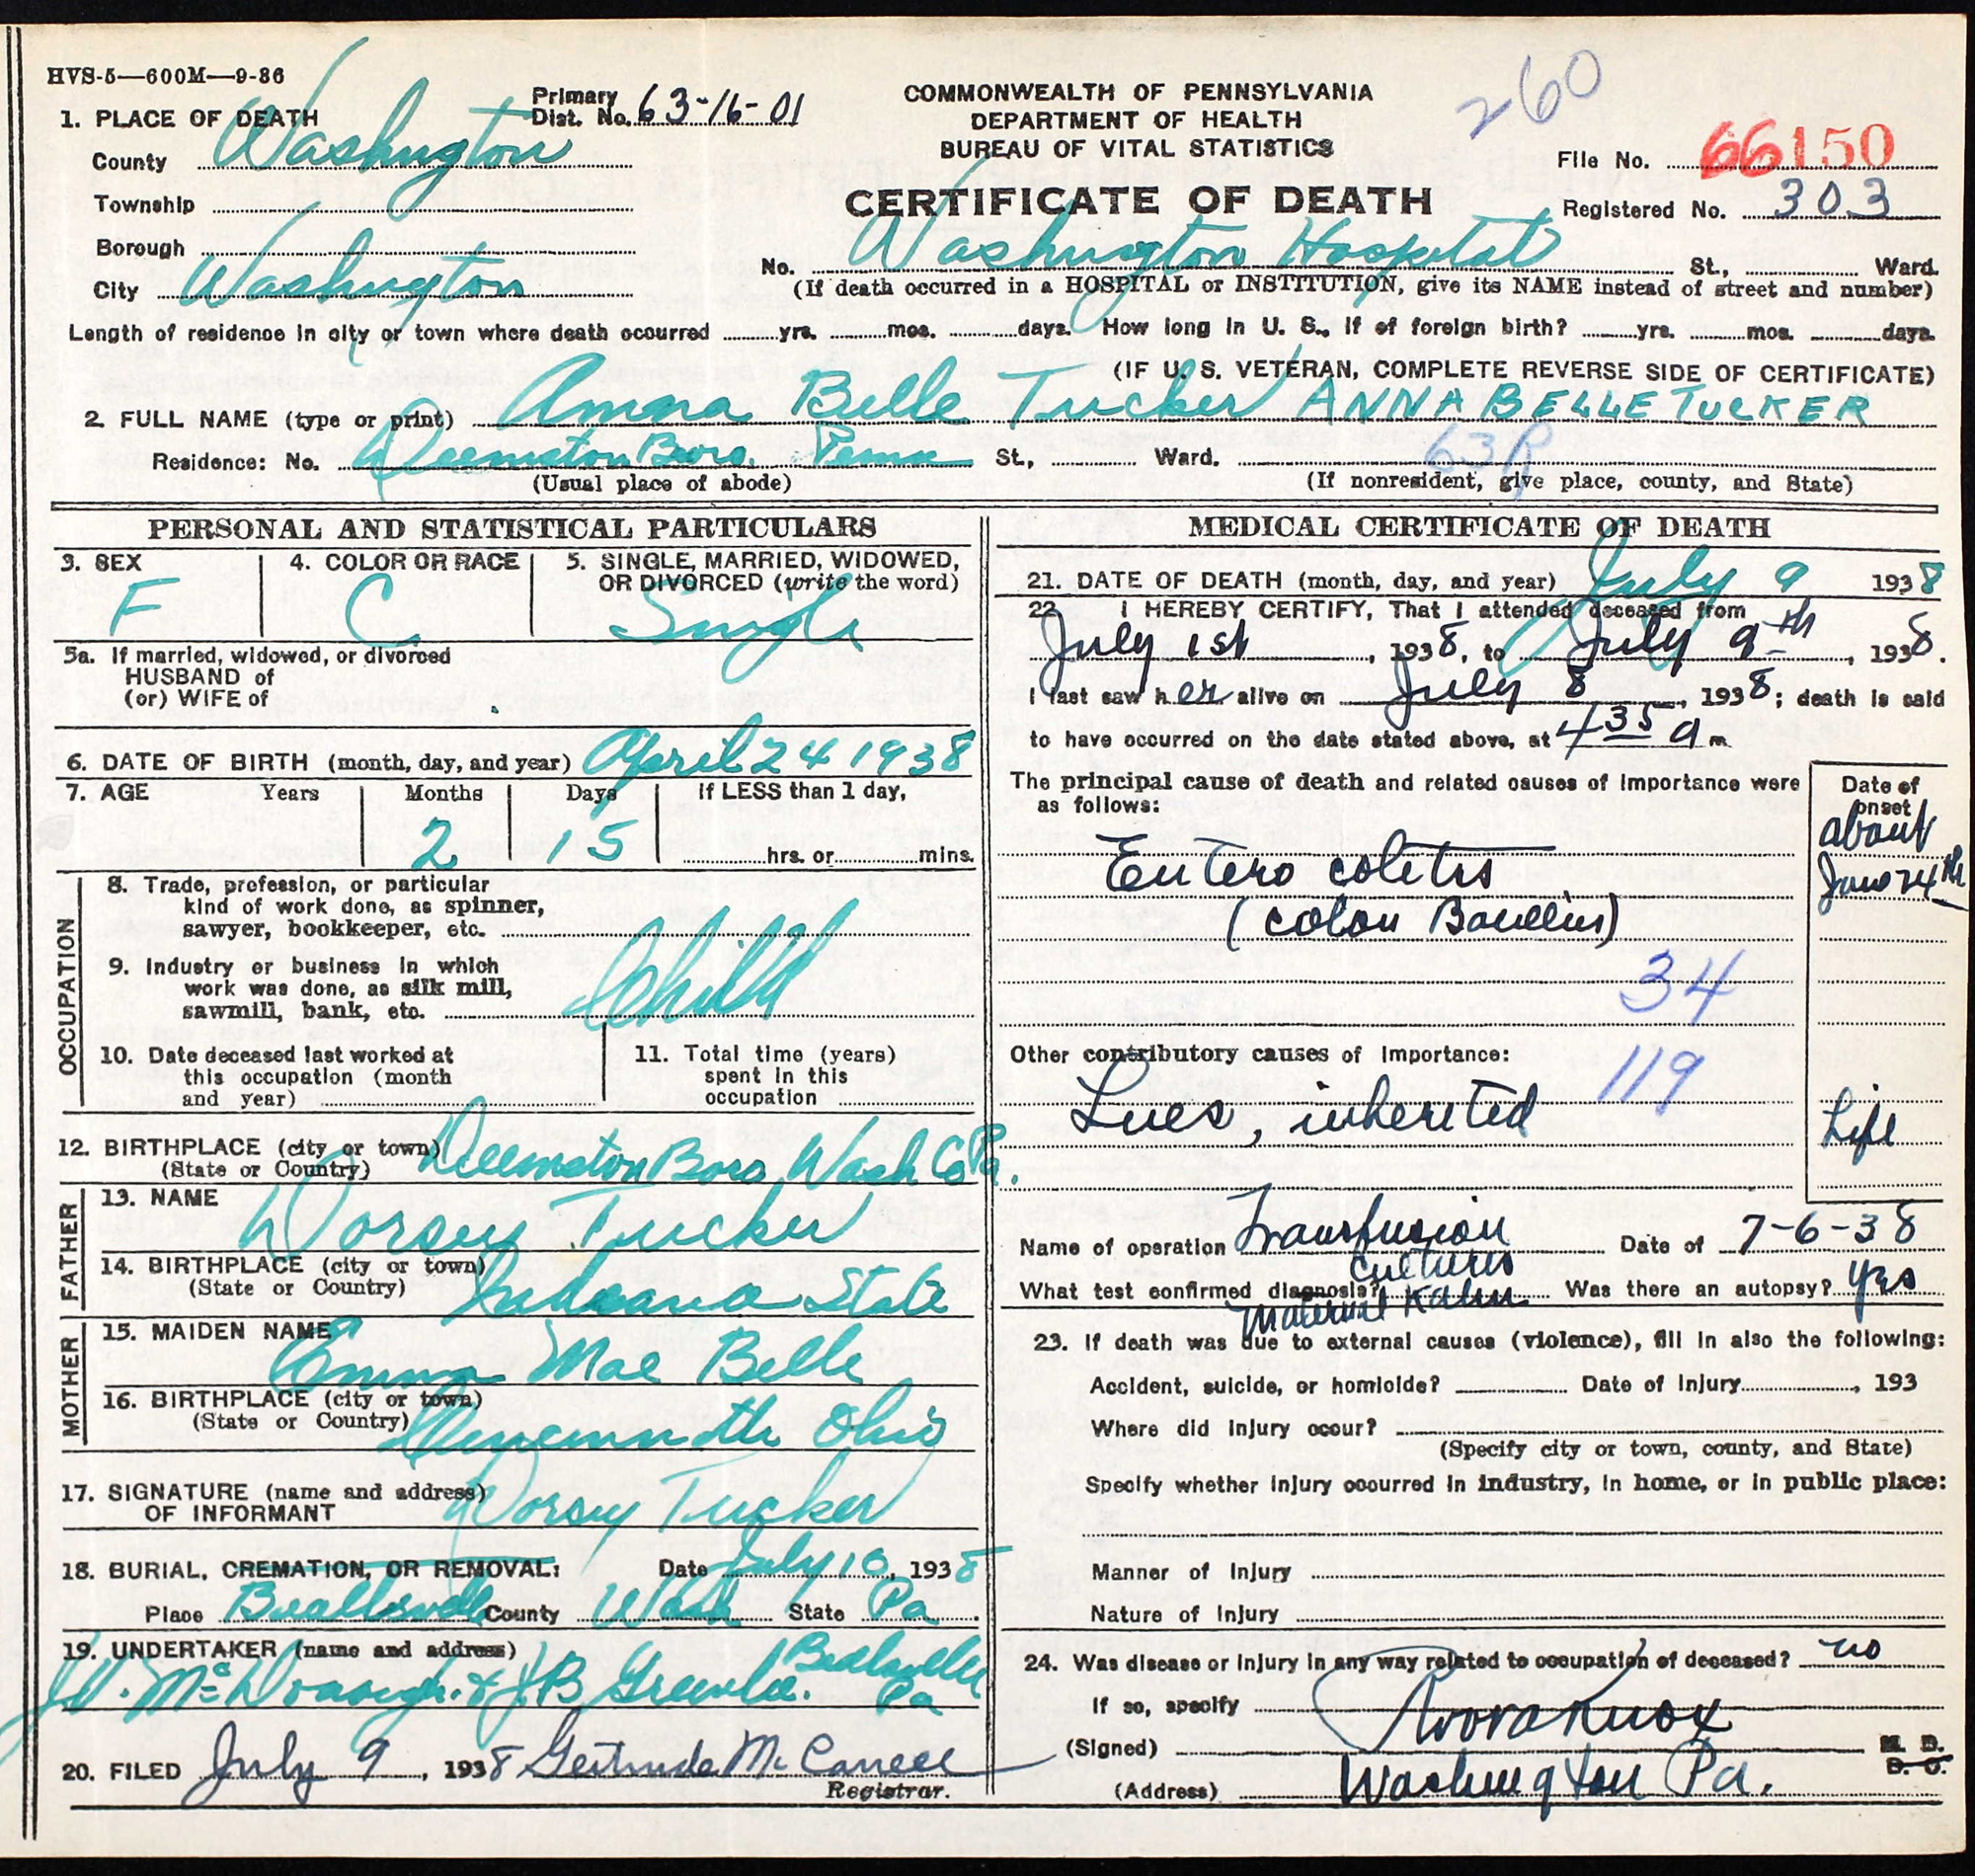 HVS-5—600M—9-36
260
COMMONWEALTH OF PENNSYLVANIA
DEPARTMENT OF HEALTH
BUREAU OF VITAL STATISTICS
CERTIFICATE OF DEATH
Primary Dist. No. 63-16-01
File No. 66150
Registered No. 303
1. PLACE OF DEATH
County Washington
Township
Borough
City Washington
No. Washington Hospital St., Ward.
(If death occurred in a HOSPITAL or INSTITUTION, give its NAME instead of street and number)
Length of residence in city or town where death occurred yrs. mos. days. How long in U. S., if of foreign birth? yrs. mos. days.
(IF U. S. VETERAN, COMPLETE REVERSE SIDE OF CERTIFICATE)
2. FULL NAME (type or print) Anna Belle Tucker ANNA BELLE TUCKER
Residence: No. Deemston Boro. Penna St., Ward. 63R
(Usual place of abode) (If nonresident, give place, county, and State)
PERSONAL AND STATISTICAL PARTICULARS
3. SEX F
4. COLOR OR RACE C
5. SINGLE, MARRIED, WIDOWED, OR DIVORCED (write the word) Single
5a. If married, widowed, or divorced
HUSBAND of
(or) WIFE of
6. DATE OF BIRTH (month, day, and year) April 24 1938
7. AGE Years Months 2 Days 15 If LESS than 1 day, hrs. or mins.
OCCUPATION
8. Trade, profession, or particular
kind of work done, as spinner,
sawyer, bookkeeper, etc.
9. Industry or business in which
work was done, as silk mill,
sawmill, bank, etc.
Child
10. Date deceased last worked at
this occupation (month
and year)
11. Total time (years)
spent in this
occupation
12. BIRTHPLACE (city or town) Deemston Boro Wash Co Pa.
(State or Country)
FATHER
13. NAME Dorsey Tucker
14. BIRTHPLACE (city or town) Indeana State
(State or Country)
MOTHER
15. MAIDEN NAME Emma Mae Belle
16. BIRTHPLACE (city or town)
(State or Country) Ohio
17. SIGNATURE (name and address) Dorsey Tucker
OF INFORMANT
18. BURIAL, CREMATION, OR REMOVAL: Date July 10, 1938
Place Beallsville County Wash State Pa.
19. UNDERTAKER (name and address) Beallsville
McDonough & JB Greenlee. Pa
20. FILED July 9, 1938 Gertrude McCarrell
Registrar.
MEDICAL CERTIFICATE OF DEATH
21. DATE OF DEATH (month, day, and year) July 9 1938
22. I HEREBY CERTIFY, That I attended deceased from
July 1st, 1938, to July 9th, 1938.
I last saw her alive on July 8, 1938; death is said
to have occurred on the date stated above, at 4 35 a m.
The principal cause of death and related causes of importance were
as follows:
Date of
onset
about
June 24th
Entero colitis
(colon Bacillus)
34
Other contributory causes of importance:
119
Lues, inherited Life
Name of operation Transfusion Date of 7-6-38
What test confirmed diagnosis? cultures Was there an autopsy? yes
maternal Kahn
23. If death was due to external causes (violence), fill in also the following:
Accident, suicide, or homicide? Date of Injury, 193
Where did injury occur?
(Specify city or town, county, and State)
Specify whether injury occurred in industry, in home, or in public place:
Manner of Injury
Nature of Injury
24. Was disease or injury in any way related to occupation of deceased? no
If so, specify
(Signed) Knox M. D.
D. O.
(Address) Washington Pa.